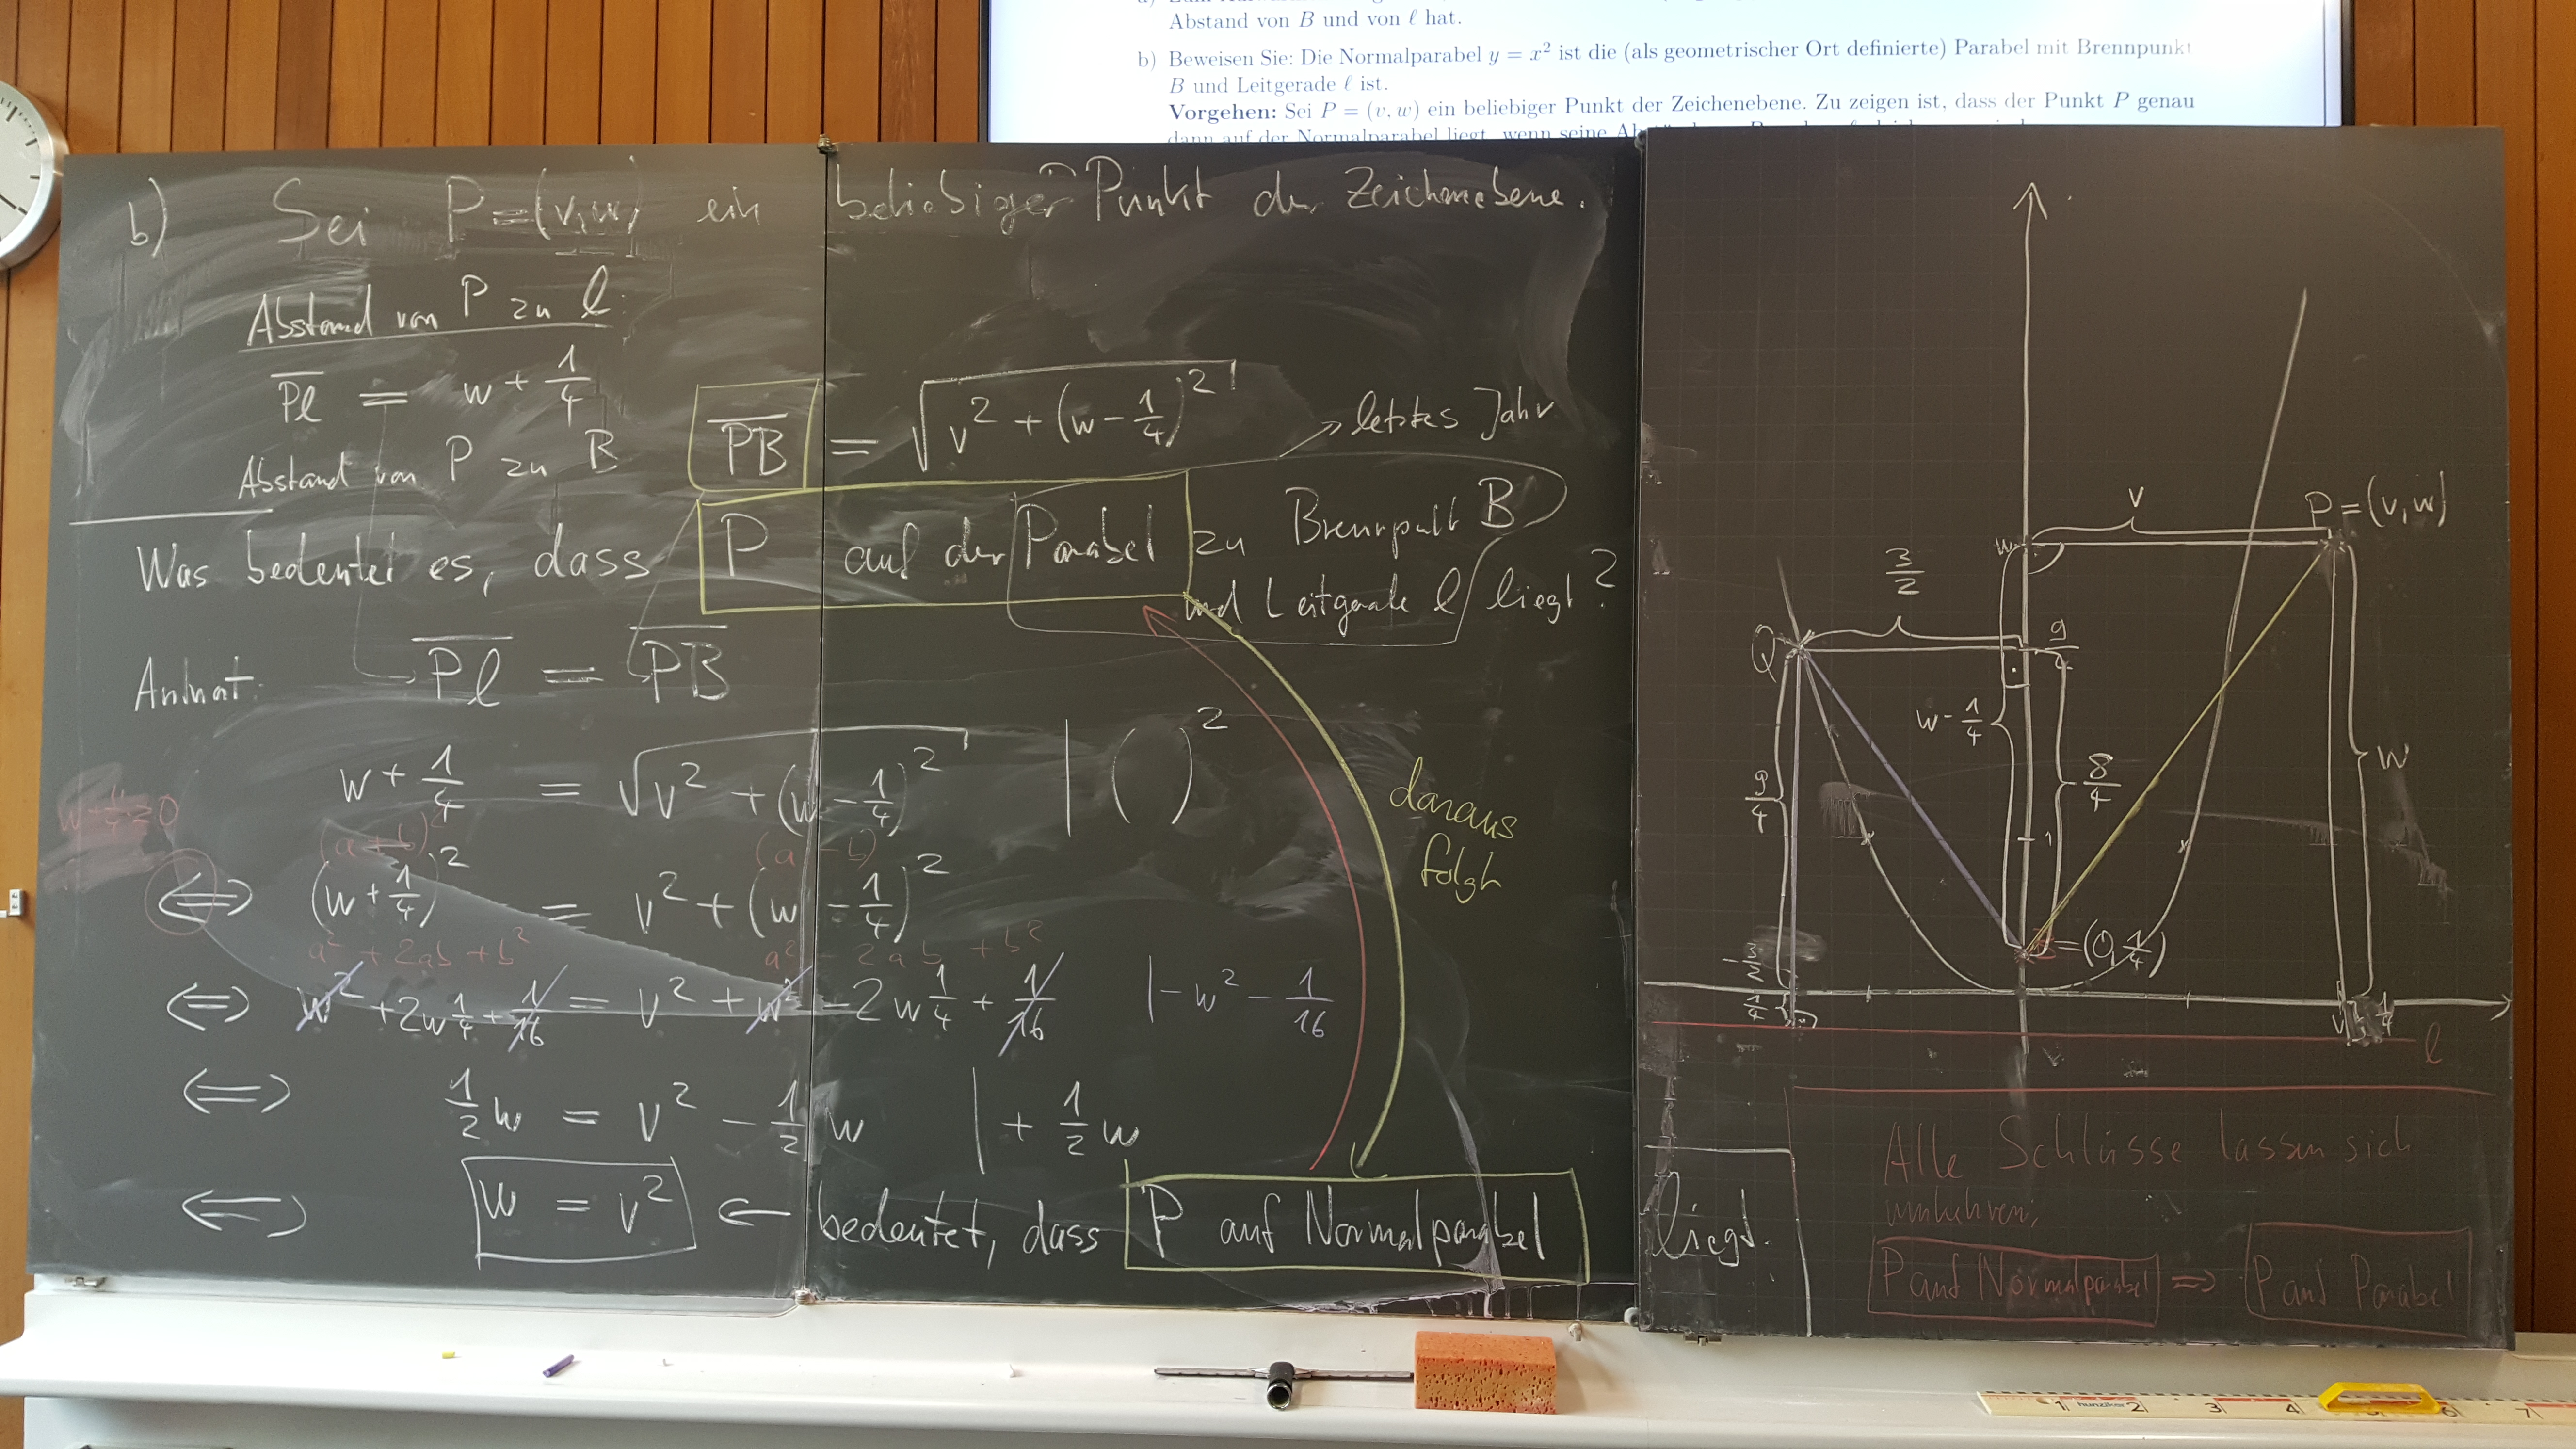 Abstand von B und von ℓ hat.
b) Beweisen Sie: Die Normalparabel y = x² ist die (als geometrischer Ort definierte) Parabel mit Brennpunkt
B und Leitgerade ℓ ist.
Vorgehen: Sei P = (v, w) ein beliebiger Punkt der Zeichenebene. Zu zeigen ist, dass der Punkt P genau
dann auf der Normalparabel liegt, wenn seine
b) Sei P = (v, w) ein beliebiger Punkt der Zeichenebene.
Abstand von P zu ℓ:
Pℓ = w + 1/4
Abstand von P zu B PB = √(v² + (w - 1/4)²)
letztes Jahr
Was bedeutet es, dass P auf der Parabel zu Brennpunkt B
und Leitgerade ℓ liegt?
Antwort: Pℓ = PB
w + 1/4 = √(v² + (w - 1/4)²) | ( )²
w + 1/4 ≥ 0
(a + b)² (a - b)²
⇔ (w + 1/4)² = v² + (w - 1/4)²
a² + 2ab + b² a² - 2ab + b²
⇔ w² + 2w 1/4 + 1/16 = v² + w² - 2w 1/4 + 1/16 | - w² - 1/16
⇔ 1/2 w = v² - 1/2 w | + 1/2 w
⇔ w = v² ← bedeutet, dass P auf Normalparabel liegt.
daraus
folgt
P = (v, w)
v
w
3/2
Q
9/4
w - 1/4
8/4
9/4
w
1
B = (0, 1/4)
-3/2
1/4
v
1/4
ℓ
Alle Schlüsse lassen sich
umkehren:
P auf Normalparabel ⇒ P auf Parabel
hunziker
1 2 3 4 6 7